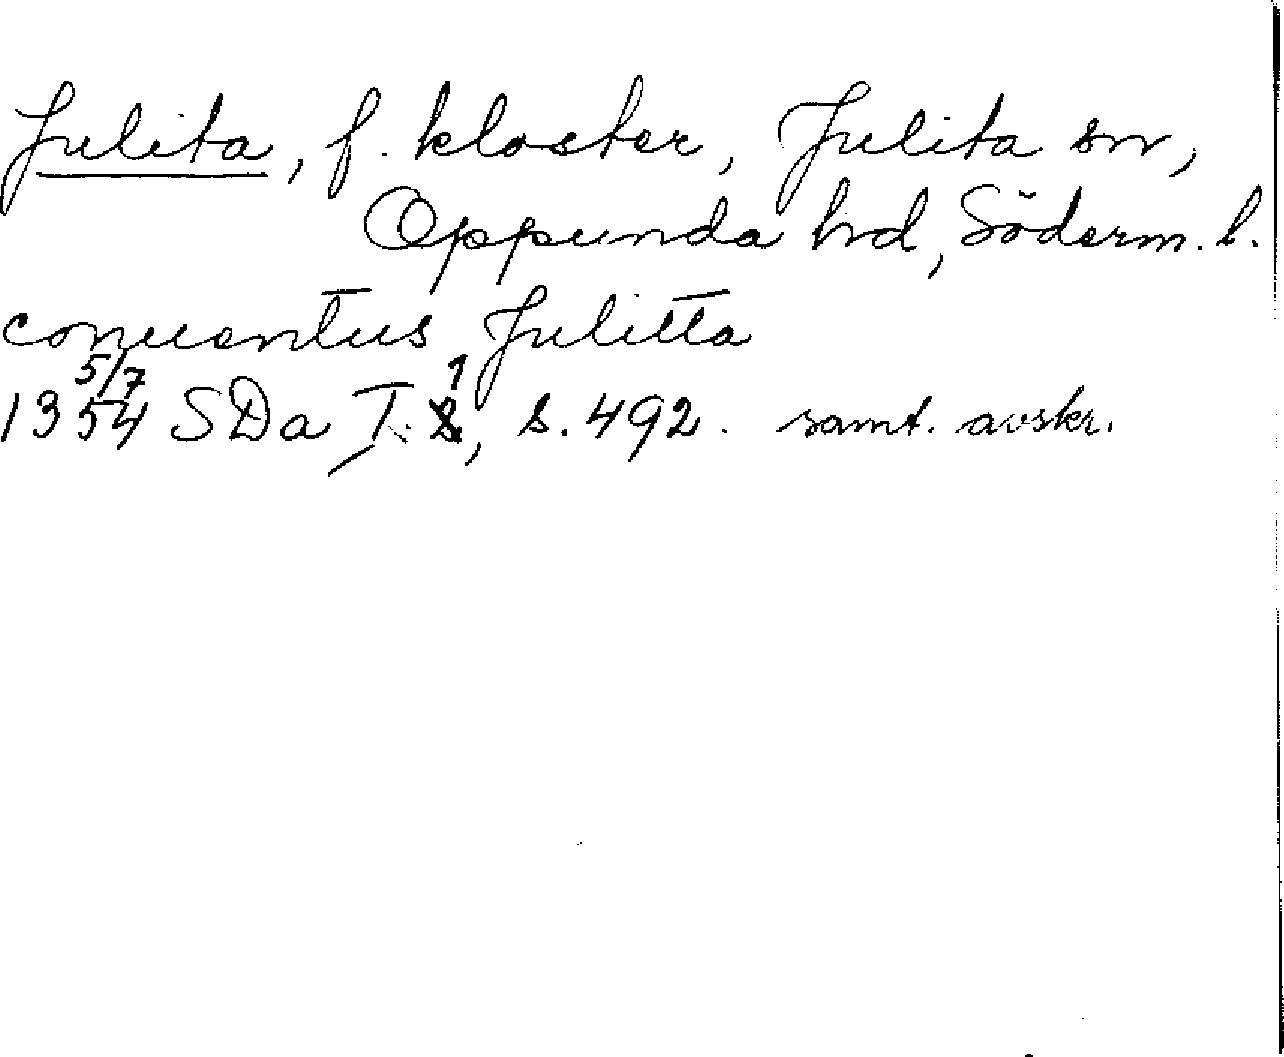 Julita, f. kloster, Julita sn,
Oppunda hd, Söderm. l.
conuentus Julitta
1354 5/7 SDa I. 1, s. 492. samt. avskr.